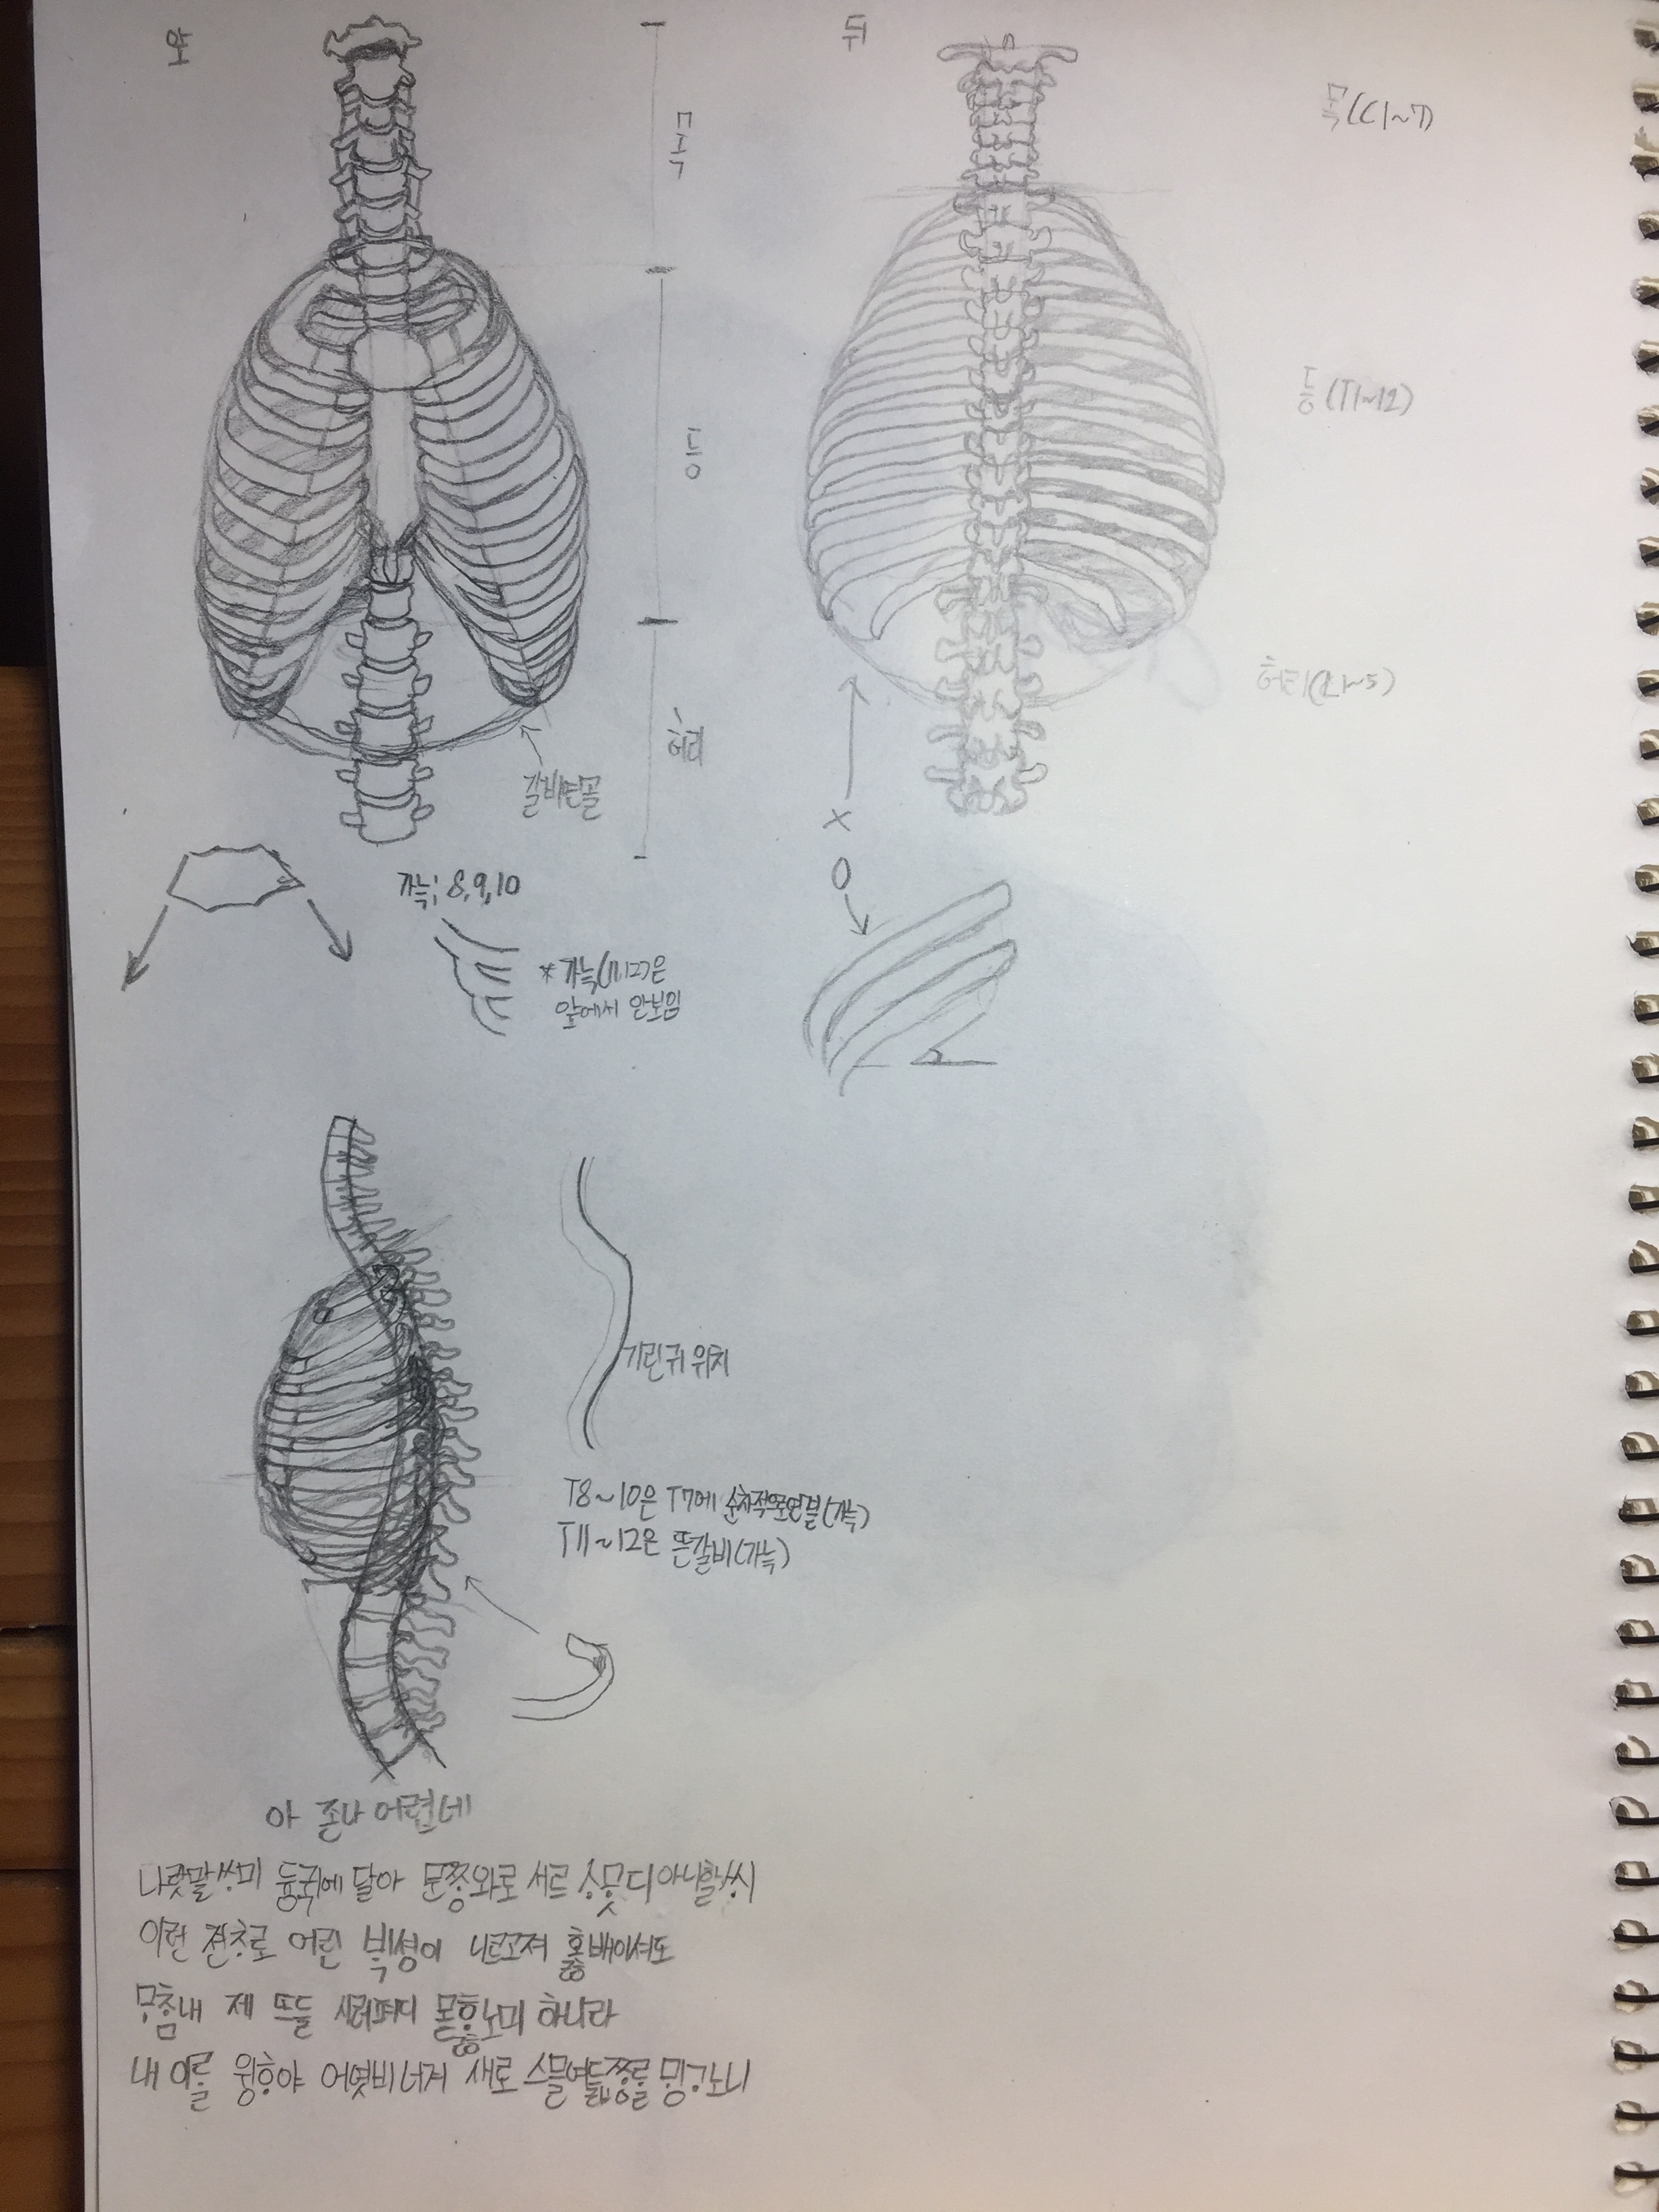 앞
뒤
목
목(C1~7)
등
등(T1~12)
허리
허리(L1~5)
갈비연골
가늑: 8,9,10
*가늑(11,12)은
앞에서 안보임
X
O
기린귀 위치
T8~10은 T7에 순차적으로 연결(가늑)
T11~12은 뜬갈비(가늑)
아 존나 어렵네
나랏말ᄊᆞ미 듕귁에 달아 문ᄍᆞᆼ와로 서르 ᄉᆞᄆᆞᆺ디 아니ᄒᆞᆯᄊᆡ
이런 젼ᄎᆞ로 어린 ᄇᆡᆨ셩이 니르고져 호ᇙ배이셔도
ᄆᆞᄎᆞᆷ내 제 ᄠᅳ들 시러펴디 몯ᄒᆞᇙ노미 하니라
내 이ᄅᆞᆯ 윙ᄒᆞ야 어엿비너겨 새로 스믈여듧ᄍᆞᆼᄅᆞᆯ ᄆᆡᇰᄀᆞ노니